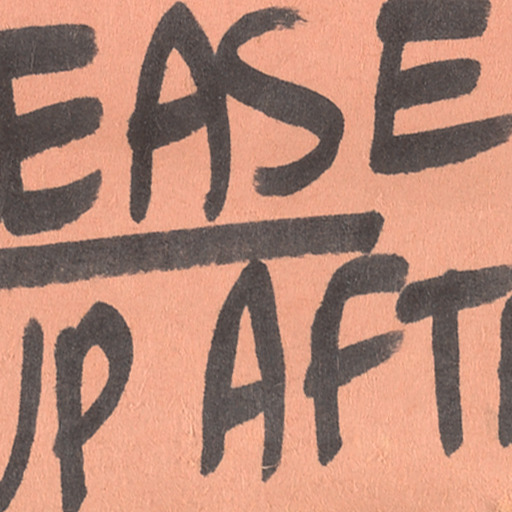 EASE
UP AFT